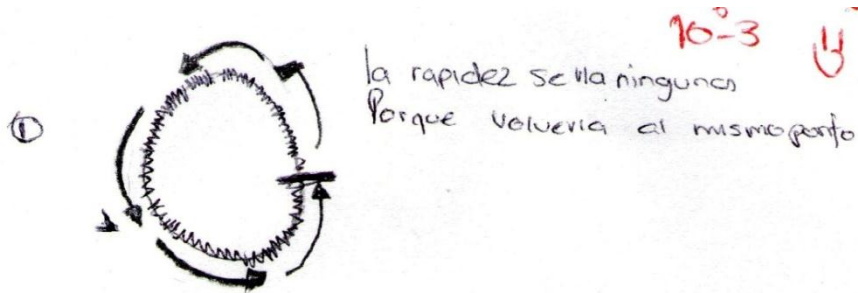 10°-3
①
la rapidez seria ninguna
Porque volveria al mismo punto